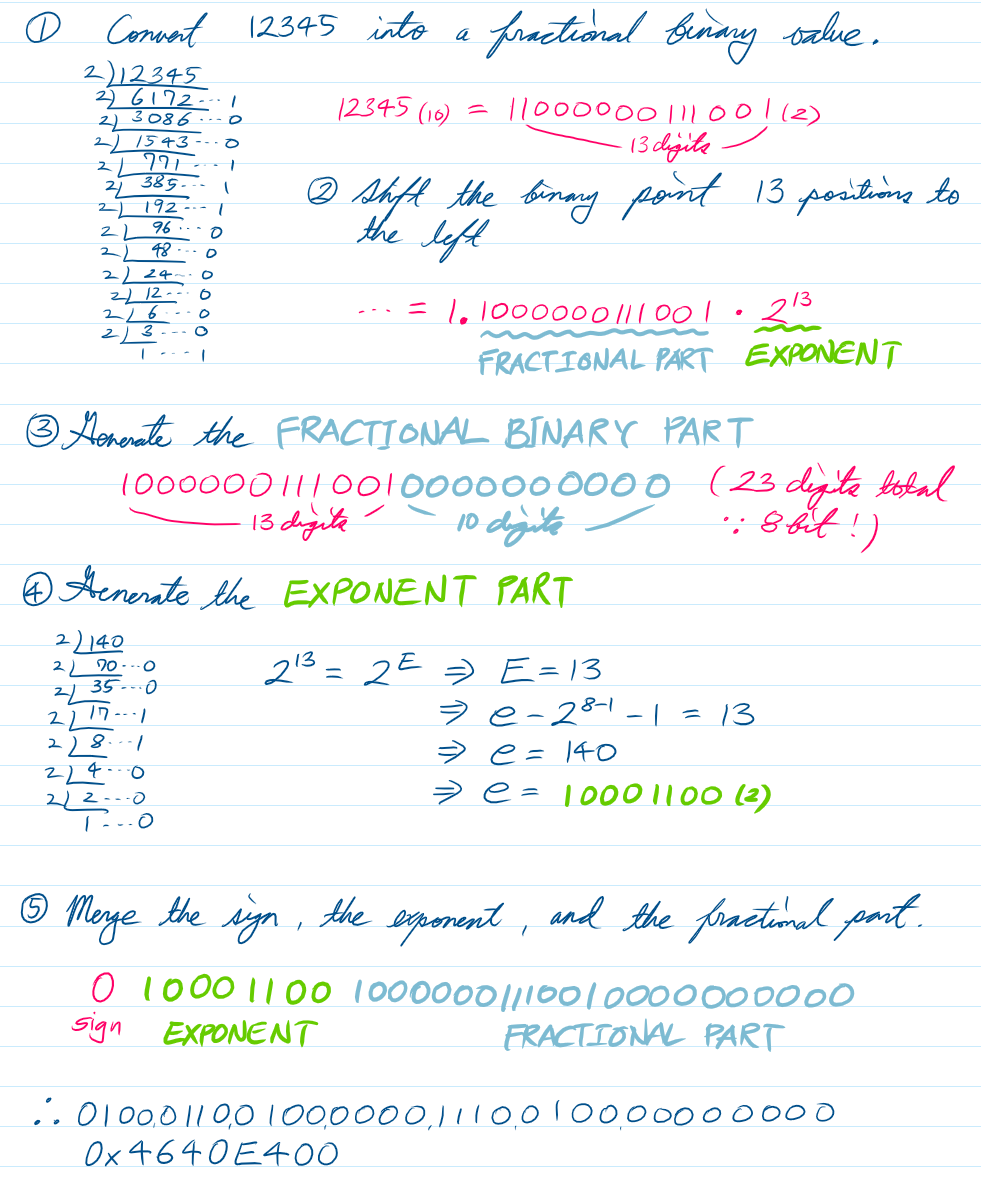 ① Convert 12345 into a fractional binary value.
2)12345
2) 6172...1
2) 3086...0
2) 1543...0
2) 771...1
2) 385...1
2) 192...1
2) 96...0
2) 48...0
2) 24...0
2) 12...0
2) 6...0
2) 3...0
1....1
12345(10) = 11000000111001(2)
13 digits
② Shift the binary point 13 positions to
the left
... = 1.1000000111001 · 2^13
FRACTIONAL PART EXPONENT
③ Generate the FRACTIONAL BINARY PART
10000001110010000000000 (23 digits total
13 digits 10 digits ∵ 8 bit!)
④ Generate the EXPONENT PART
2)140
2) 70...0
2) 35...0
2) 17...1
2) 8...1
2) 4...0
2) 2...0
1...0
2^13 = 2^E ⇒ E = 13
⇒ e - 2^8-1 - 1 = 13
⇒ e = 140
⇒ e = 10001100 (2)
⑤ Merge the sign, the exponent, and the fractional part.
0 10001100 10000001110010000000000
sign EXPONENT FRACTIONAL PART
∴ 0100,0110,0100,0000,1110,0100,00000000
0x4640E400